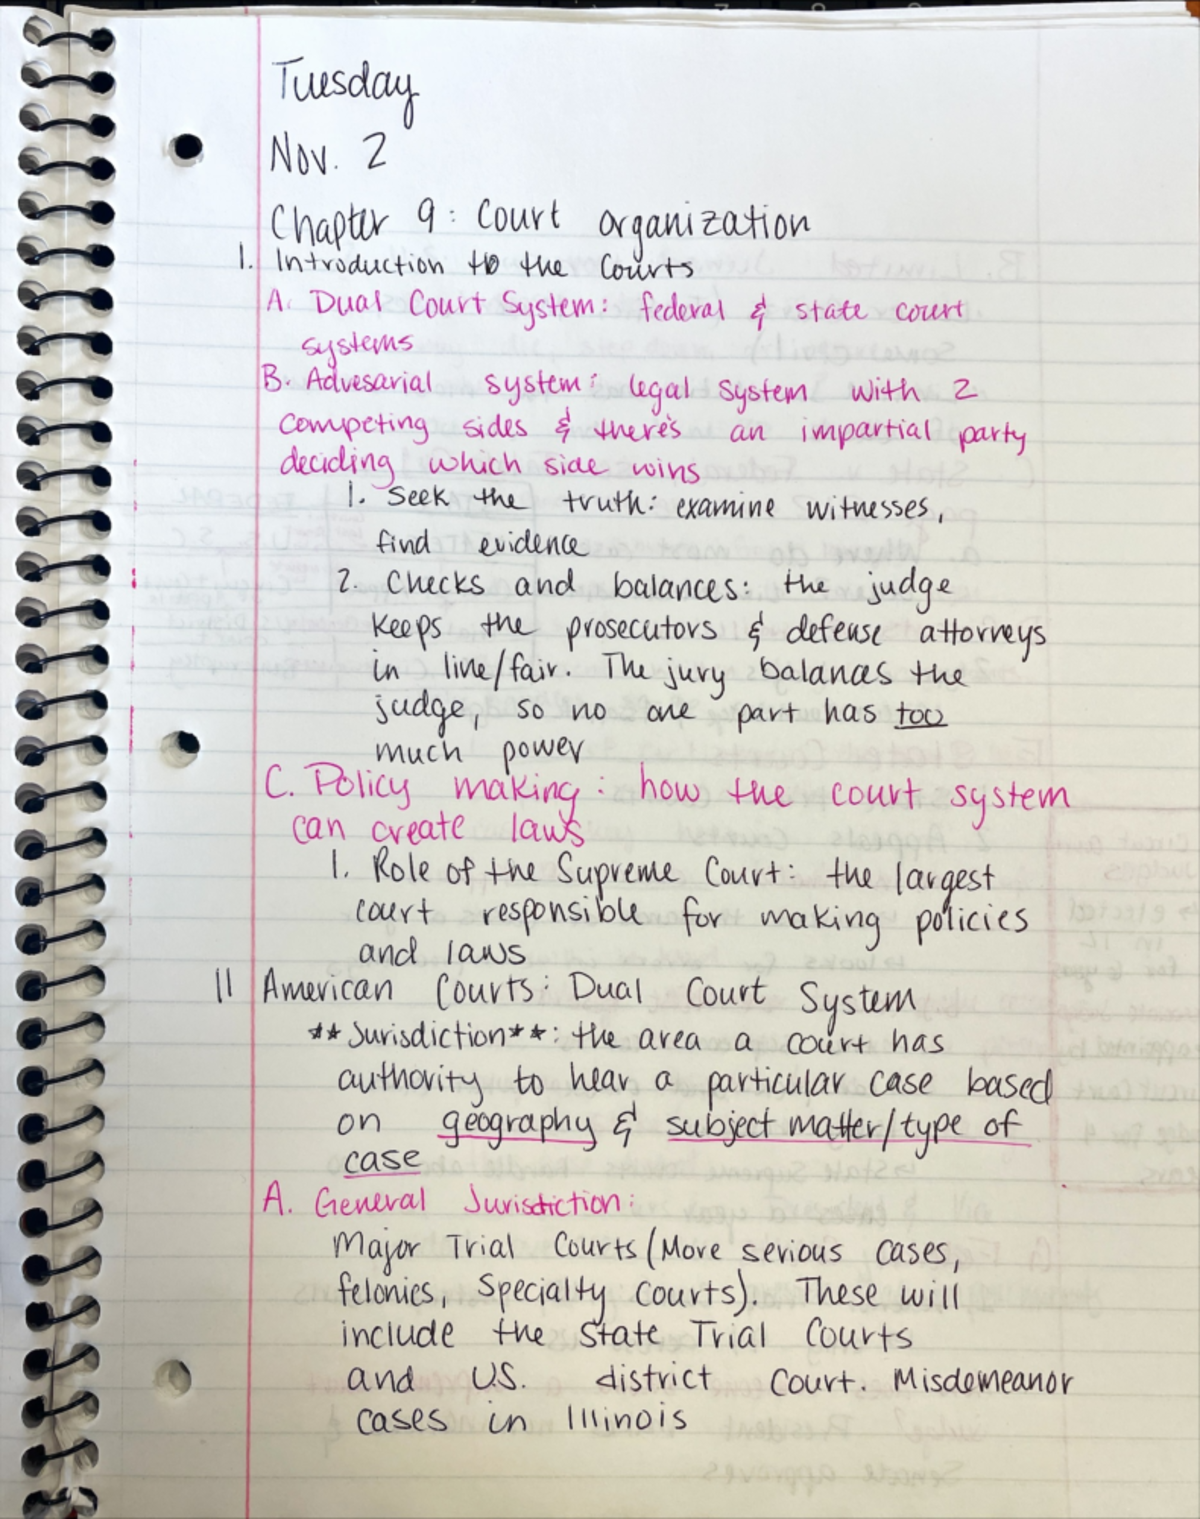 Tuesday
Nov. 2
Chapter 9: Court organization
1. Introduction to the Courts
A. Dual Court System: federal & state court
systems
B. Advesarial system: legal system with 2
competing sides & there's an impartial party
deciding which side wins
1. Seek the truth: examine witnesses,
find evidence
2. Checks and balances: the judge
keeps the prosecutors & defense attorneys
in line/fair. The jury balances the
judge, so no one part has too
much power
C. Policy making: how the court system
can create laws
1. Role of the Supreme Court: the largest
court responsible for making policies
and laws
II American Courts: Dual Court System
**Jurisdiction**: the area a court has
authority to hear a particular case based
on geography & subject matter/type of
case
A. General Jurisdiction:
Major Trial Courts (More serious cases,
felonies, Specialty Courts). These will
include the State Trial Courts
and U.S. district Court. Misdemeanor
cases in Illinois